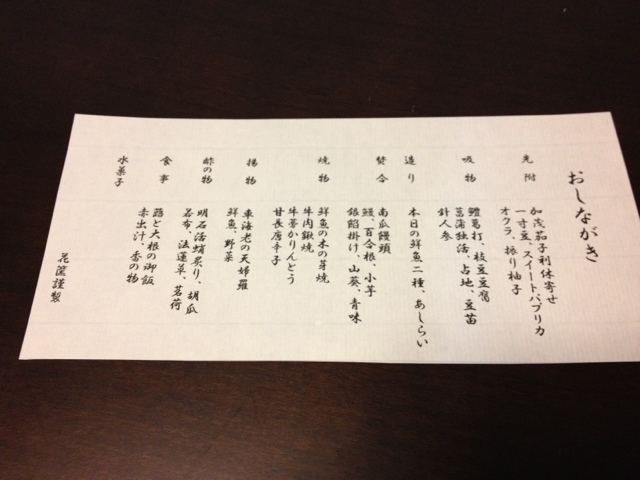 おしながき
先附
加茂茄子利休寄せ
一寸豆、スイートパプリカ
オクラ、振り柚子
吸物
鱧葛打、枝豆豆腐
菖蒲独活、占地、豆苗
針人参
造り
本日の鮮魚二種、あしらい
焚合
南瓜饅頭
鰻、百合根、小芋
銀餡掛け、山葵、青味
焼物
鮮魚の木の芽焼
牛肉鍬焼
牛蒡かりんとう
甘長唐辛子
揚物
車海老の天婦羅
鮮魚、野菜
酢の物
明石活蛸炙り、胡瓜
若布、法蓮草、茗荷
食事
蕗と大根の御飯
赤出汁、香の物
水菓子
花筐謹製